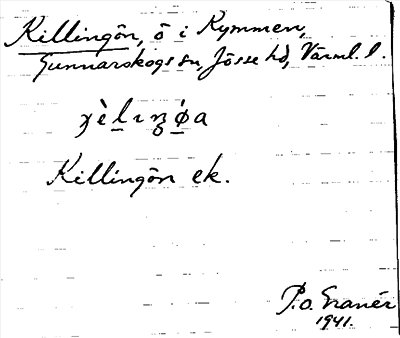 Killingön, ö i Kymmen,
Gunnarskogs sn, Jösse hd, Värml. l.
Killingön ek.
P.O. Granér
1941.